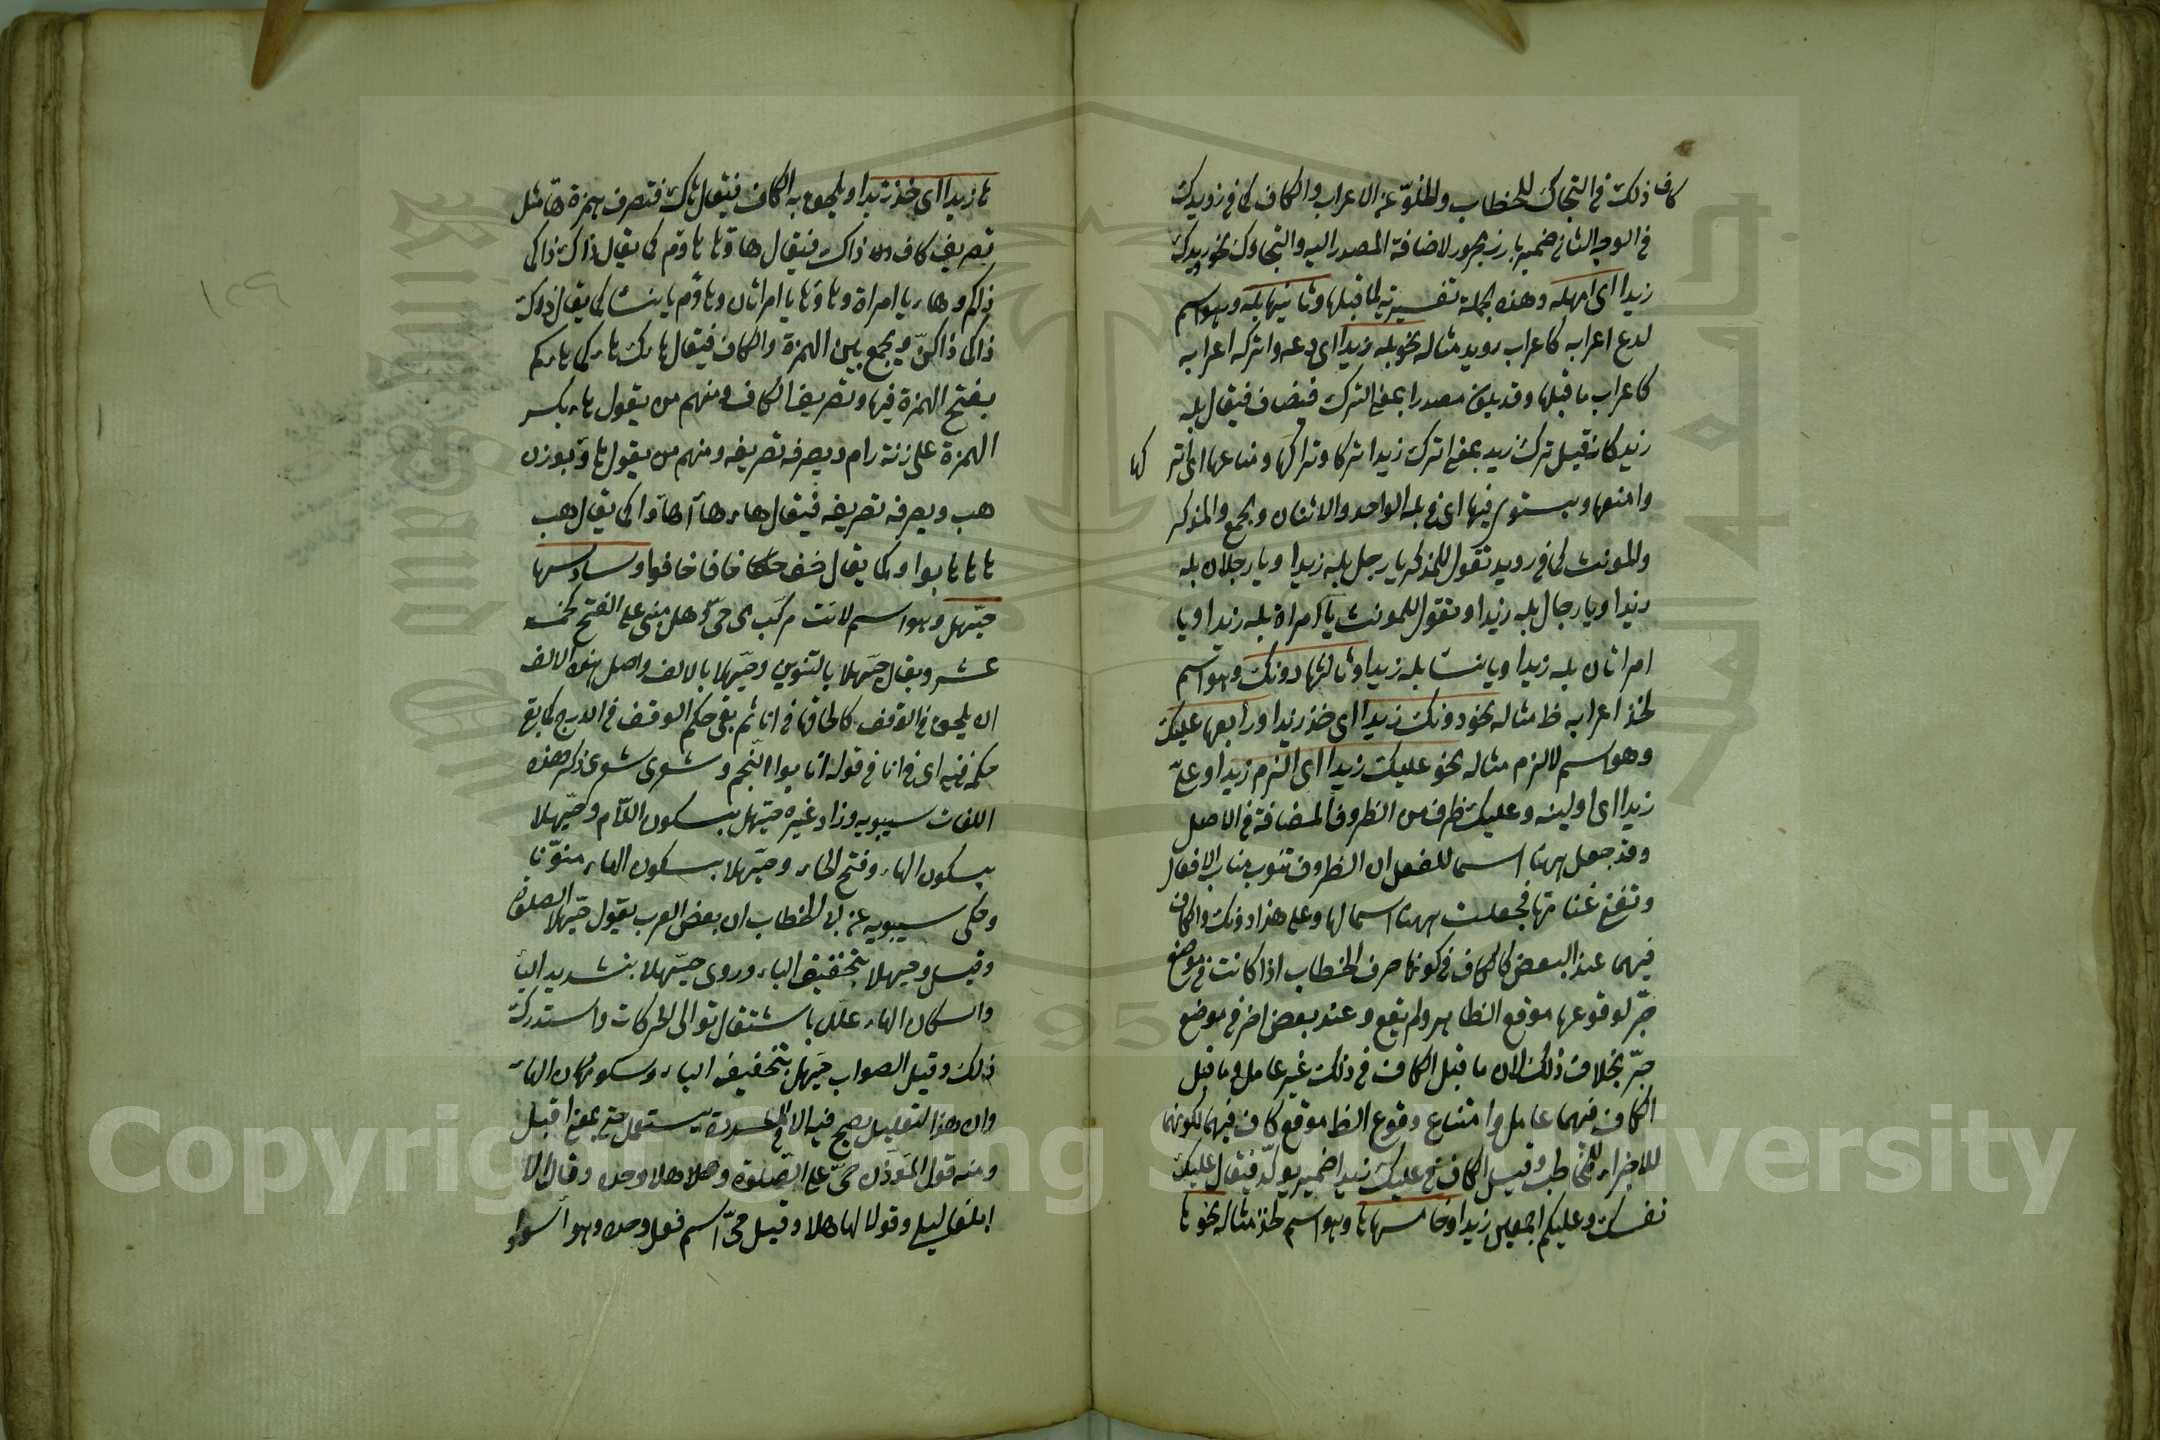 كاف ذلك في التجاك للخطاب والخلو عن الاعراب والكاف كما في رويدك
في الوجه الثاني ضمير بارز مجرور لاضافة المصدر اليه والتجاوك نحو رويدك
زيدا اى امهله وهذه الجملة تفسيرية لما قبلها وثانيها بله وهو اسم
لدع اعرابه كاعراب رويد مثاله نحو بله زيدا اى دعه واتركه اعرابه
كاعراب ما قبلها وقد يكون مصدرا بمعنى الترك فيضاف فيقال بله
زيد كانه قيل ترك زيد بمعنى اترك زيدا تركا وتراكها ومناعها اى اتر
كها
وامنعها ويستوى فيها اى في بله الواحد والاثنان والجمع والمذكر
والمونث كما في رويد تقول للمذكر يا رجل بله زيدا ويا رجلان بله
زيدا ويا رجال بله زيدا وتقول للمونث يا امراة بله زيدا ويا
امراتان بله زيدا ويا نسا بله زيدا وثالثها دونك وهو اسم
لخذ اعرابه ظ مثاله نحو دونك زيدا اى خذ زيدا ورابعها عليك
وهو اسم لالزم مثاله نحو عليك زيدا اى الزم زيدا وعلىّ
زيدا اى اولينه وعليك ظرف من الظروف المضافة في الاصل
وقد جعل ههنا اسما للفعل ان الظروف تنوب مناب الافعال
وتغنى غناءها فجعلت ههنا اسما لها وعلى هذا دونك والكاف
فيهما عند البعض كالكاف في كونها حرف الخطاب اذا كانت في موضع
جرّ لوقوعها موقع الظاهر ولم يقع وعند بعض اخر في موضع
جرّ بخلاف ذلك لان ما قبل الكاف في ذلك غير عامل وما قبل
الكاف فيهما عامل وامتناع وقوع الظ موقع كاف فيهما لكونهما
للاضراء للمخاطب وقيل الكاف في عليك زيدا ضمير يوكد فيقال عليك
نفسك وعليكم اجمعين زيدا وخامسها ها وهو اسم لخذ مثاله نحو ها
ها زيدا اى خذ زيدا ويلحق به الكاف فيقال هاك فتصرف همزة هاء مثل
تصريف كاف ذاك فيقال هاء وهاءا وهاؤم كما يقال ذاك ذاكما
ذاكم وهاء يا امراة وهاؤما يا امراتان وهاؤم يا نسا كما يقال ذاك
ذاكما ذاكنّ ويجمع بين الهمزة والكاف فيقال هاءك هاءكما هاءكم
بفتح الهمزة فيها وتصريف الكاف ومنهم من يقول هاء بكسر
الهمزة على زنة رام ويصرفه تصريفه ومنهم من يقول هاء بوزن
هب ويصرفه تصريفه فيقال هاء هاآ هاؤا كما يقال هب
هابا هابوا وكما يقال خف خافا خافوا وسادسها
حيّهل وهو اسم لائت مركب من حىّ وهل مبنى على الفتح كخمسة
عشر ويقال حيّهلا بالتنوين وحيّهلا بالالف واصل هذه الالف
ان يلحق في الوقف كالحاقها في انا ثم بقى حكم الوقف في الدرج كما بقى
حكمه فيه اى في انا في قوله انا ابو النجم وشعرى شعرى ذكر هذه
اللغات سيبويه وزاد غيره حيّهل بسكون اللام وحيّهلا
بسكون الهاء وفتح الحاء وحيّهلا بسكون الهاء منوّنا
وحكى سيبويه عن ابى الخطاب ان بعض العرب يقول حيّهلا الصلوة
وقيل وحيهلا بتخفيف الياء وروى حيّهلا بتشديد اليا
واسكان الهاء علل باستثقال توالى الحركات واستدرك
ذلك وقيل الصواب حيهل بتخفيف الياء وسكون الهاء
وان هذا التعليل يصح فيه لا في المشددة يستعمل حىّ بمعنى اقبل
ومنه قول الموذن حىّ على الصلوة وهلا وهلا وحده وقال الا
ابلغا ليلى وقولا لها هلا وقيل حىّ اسم فعل وحده وهو